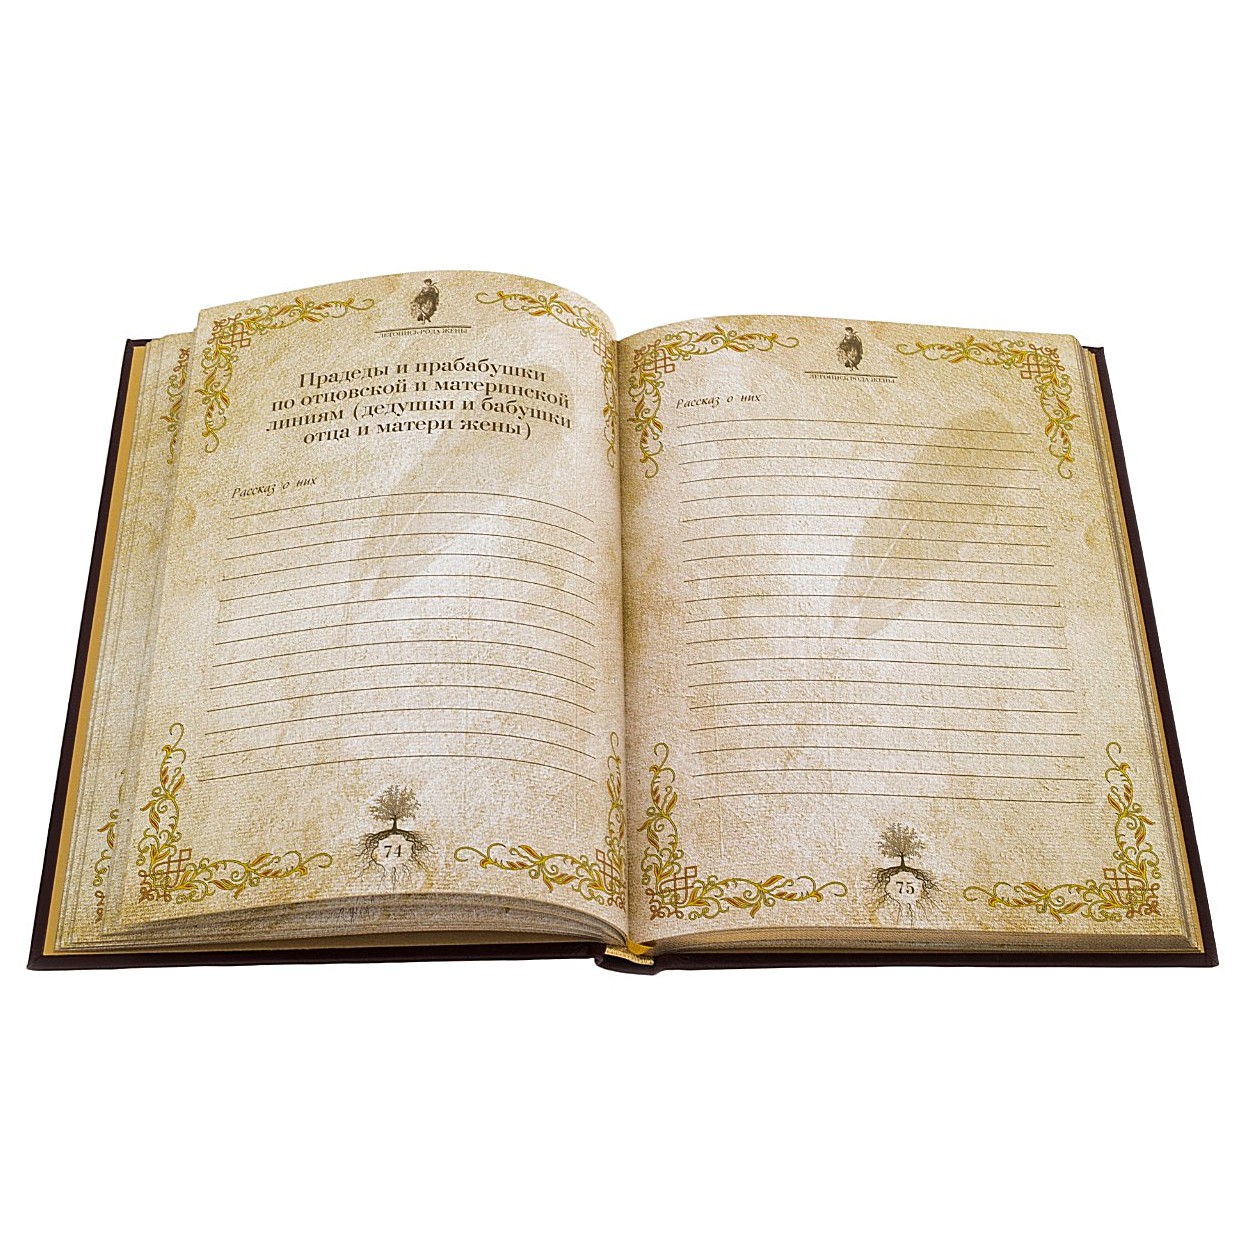 ЛЕТОПИСЬ РОДА ЖЕНЫ
Прадеды и прабабушки
по отцовской и материнской
линиям (дедушки и бабушки
отца и матери жены)
Рассказ о них
74
ЛЕТОПИСЬ РОДА ЖЕНЫ
Рассказ о них
75